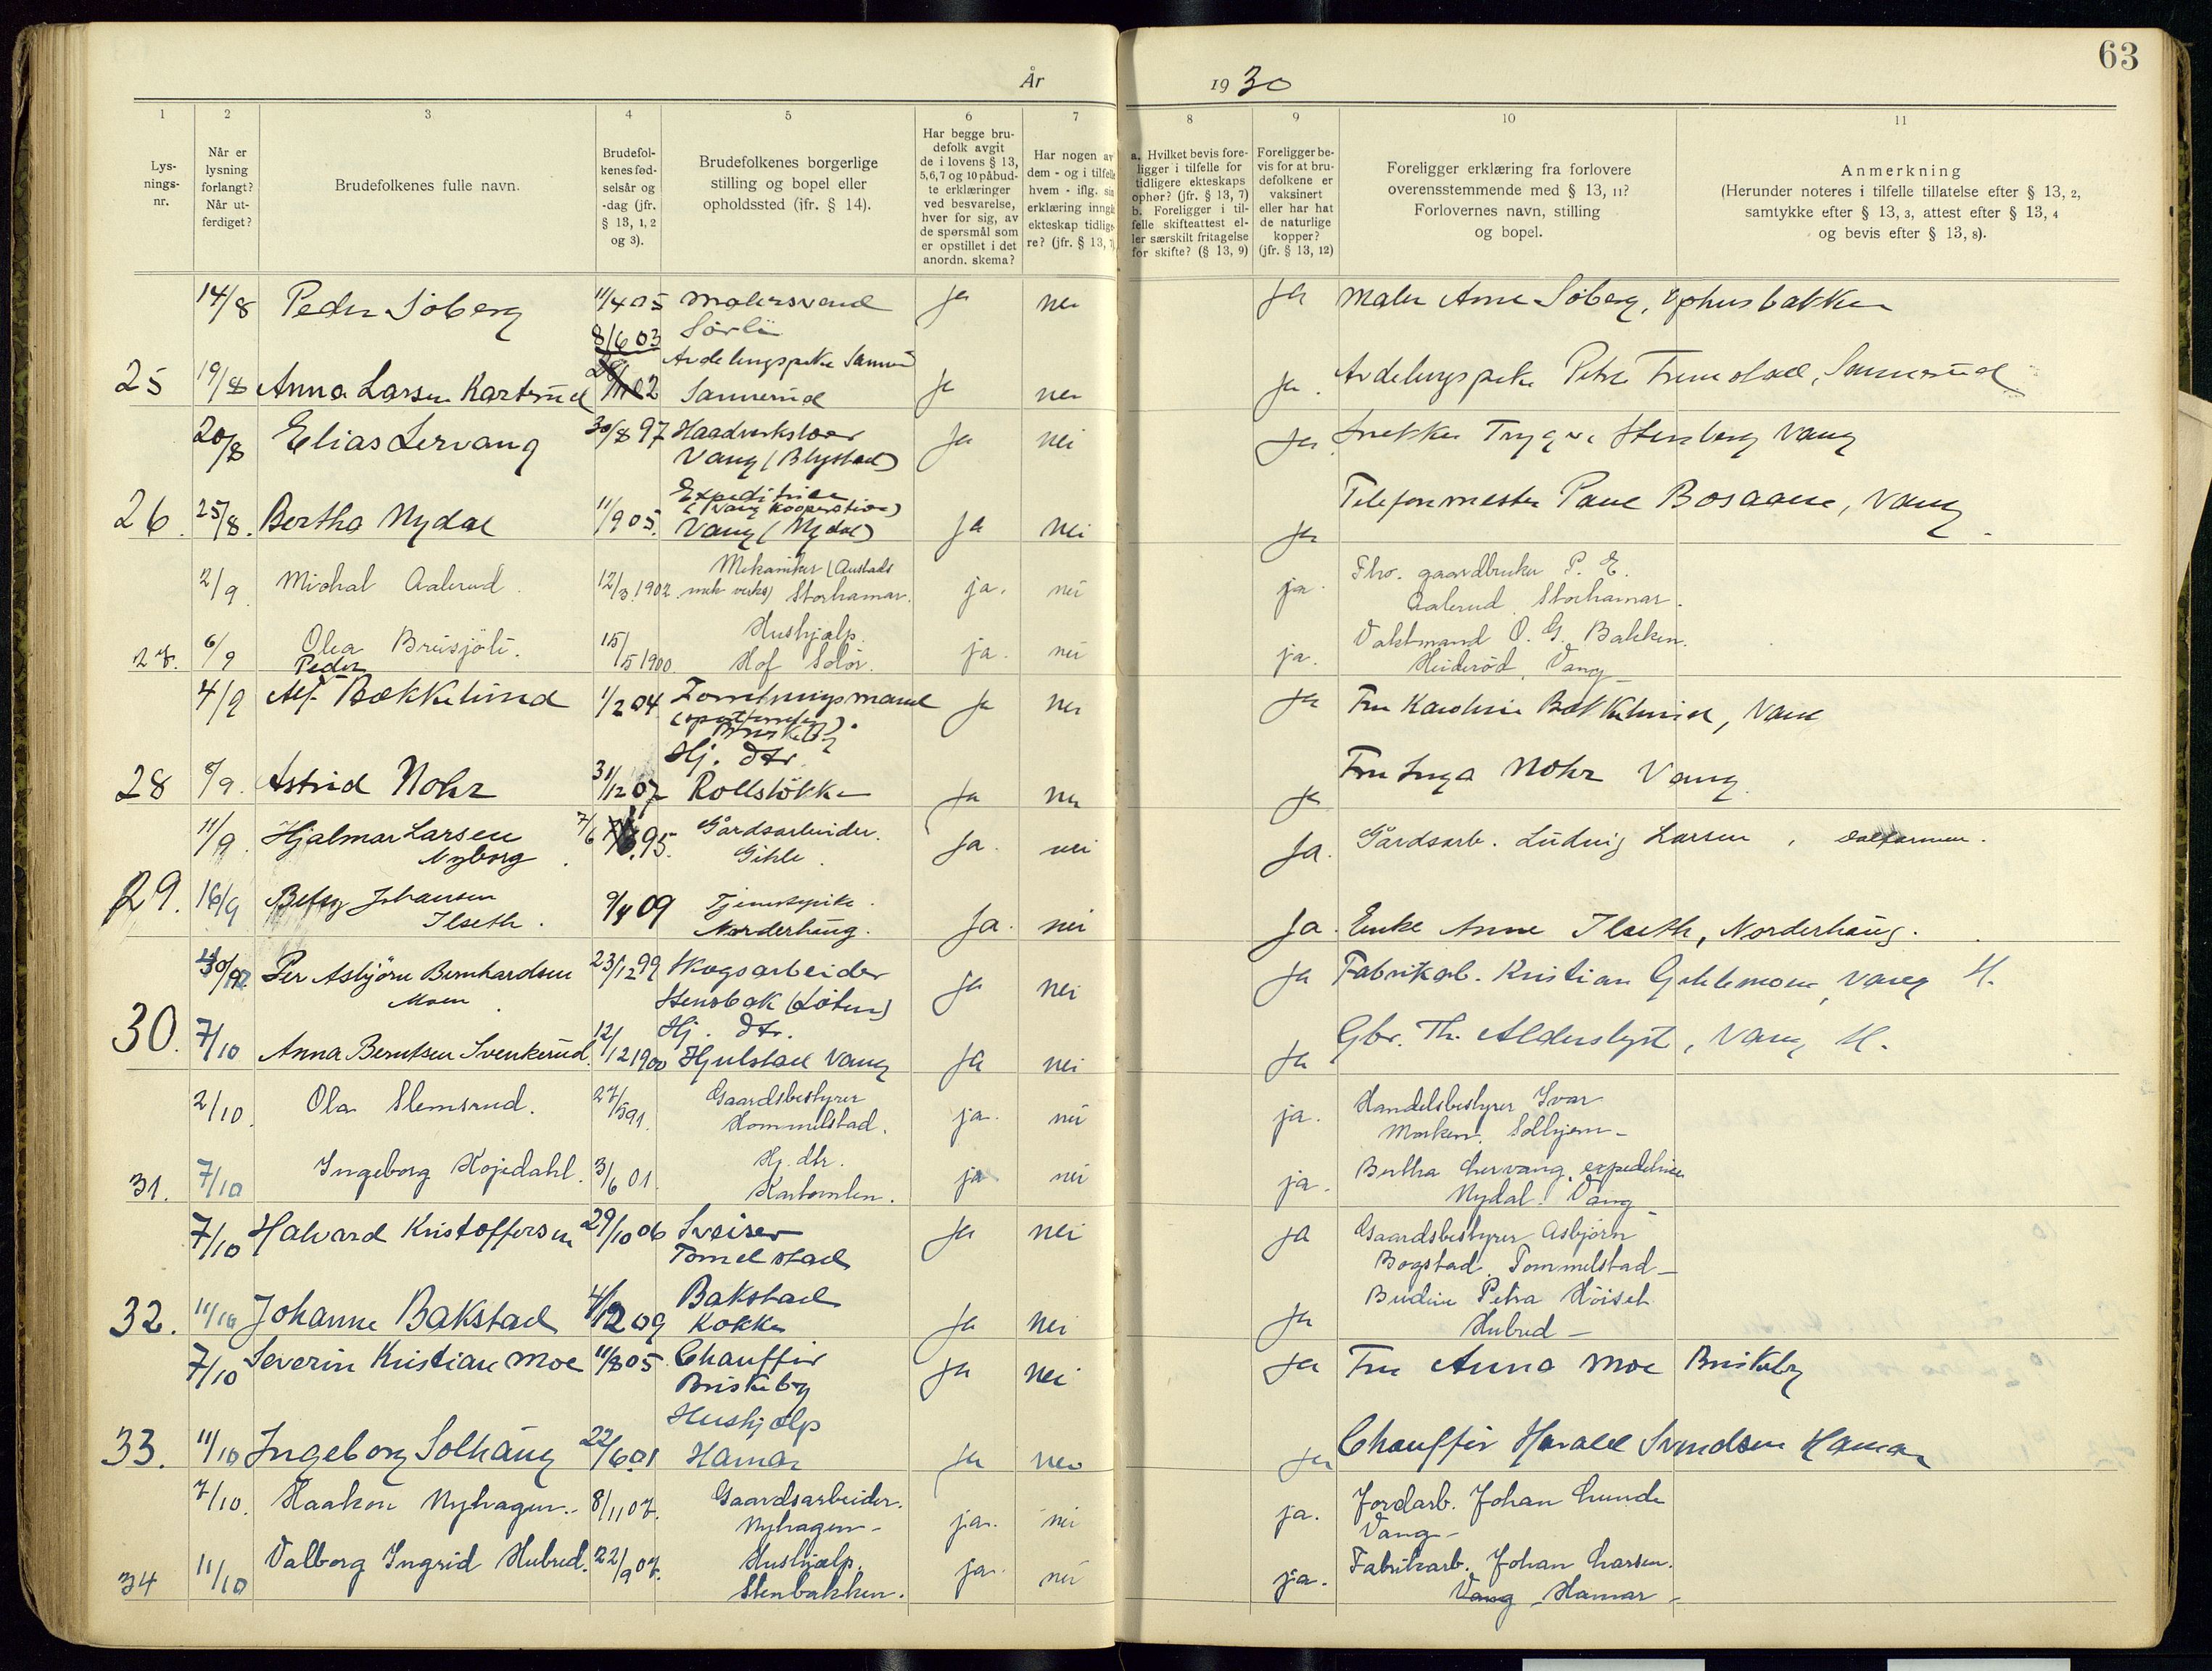 63
År 1930
1 2 3 4 5 6 7 8 9 10 11
Lys-
nings-
nr.
Når er
lysning
forlangt?
Når ut-
ferdiget?
Brudefolkenes fulle navn.
Brudefol-
kenes fød-
selsår og
-dag (jfr.
§ 13, 1, 2
og 3).
Brudefolkenes borgerlige
stilling og bopel eller
opholdssted (jfr. § 14).
Har begge bru-
defolk avgit
de i lovens § 13,
5, 6, 7 og 10 påbud-
te erklæringer
ved besvarelse,
hver for sig, av
de spørsmål som
er opstillet i det
anordn. skema?
Har nogen av
dem - og i tilfelle
hvem - iflg. sin
erklæring inngåt
ekteskap tidlige-
re? (jfr. § 13, 7)
a. Hvilket bevis fore-
ligger i tilfelle for
tidligere ekteskaps
ophør? (jfr. § 13, 7)
b. Foreligger i til-
felle skifteattest el-
ler særskilt fritagelse
for skifte? (§ 13, 9)
Foreligger be-
vis for at bru-
defolkene er
vaksinert
eller har hat
de naturlige
kopper?
(jfr. § 13, 12)
Foreligger erklæring fra forlovere
overensstemmende med § 13, 11?
Forlovernes navn, stilling
og bopel.
Anmerkning
(Herunder noteres i tilfelle tillatelse efter § 13, 2,
samtykke efter § 13, 3, attest efter § 13, 4
og bevis efter § 13, 8).
14/8 Peder Söberg 11/4 05 malersvend ja nei ja Maler Arne Söberg, Ophusbakken
8/6 03 Sörli
Avdelingspike Sannerud
25 19/8 Anna Larsen Karterud Sannerud ja nei ja. Avdelingspike Petra Fremstad, Sannerud
20/8 Elias Lervang 30/8 97 Haandverksloer ja nei ja Snekker Trygve Stensberg Vang
Vang (Blystad)
Expeditrise
(Vang kooperation)
26. 25/8. Bertha Nydal 11/9 05. Vang (Nydal) ja nei ja Telefonmester Paul Bosaaen, Vang
2/9 Michal Aalerud. 12/3 1902. Mekaniker (Austads
mek verks) Storhamar. ja. nei ja. Fhv. gaardbruker P. E.
Aalerud. Storhamar.
27. 6/9 Olea Brusjöli. 15/5 1900. Hushjælp.
Hof Solör. ja. nei ja. Vaktmand O. G. Bakken.
Heideröd, Vang
Peder
4/9 Alf Bækkelund 1/2 04 Forretningsmand ja nei ja Fru Karoline Bækkelund, Vang
Briskeby
Hj. dtr.
28 8/9. Astrid Nohr 31/12 07 Rollslökka ja nei ja Fru Inga Nohr Vang
11/9 Hjalmar Larsen 7/6 95. Gårdsarbeider. ja. nei ja. Gårdsarb. Ludvig Larsen,
Nyborg. Gihle.
29. 16/9 Betsy Johansen 9/4 09 Tjenestepike.
Ilseth. Norderhaug. ja. nei ja. Enke Anne Ilseth, Norderhaug.
30/9 Per Asbjörn Bernhardsen 23/12 99 Skogsarbeider ja nei ja Fabrikarb. Kristian Gihlemoen, Vang H.
Moen. Stensbak (Löten)
30. 7/10 Anna Berntsen Svenkerud. 12/12 1900 Hj. dtr.
Hjulstad Vang ja nei ja Gbr. Th. Alderslyst, Vang H.
2/10. Ola Slemsrud. 27/5 91. Gaardsbestyrer
Hommelstad. ja. nei ja. Handelsbestyrer Ivar
Morken. Solhjem.
31. 7/10 Ingeborg Kojedahl. 3/6 01. Hj. dtr.
Kartomten. ja nei ja. Bertha Lervang, expeditrise
Nydal. Vang
7/10 Halvard Kristoffersen 29/10 06 Sveiser ja nei ja Gaardsbestyrer Asbjörn
Tomelstad Bogstad. Tommelstad
32. 11/10 Johanne Bakstad 4/12 09 Bakstad
Kokke ja nei ja Budeie Petra Höiset
Hubred
7/10 Severin Kristian Moe 11/8 05 Chauffør ja nei ja Fru Anna Moe Briskeby
Briskeby
Hushjælp
33. 11/10 Ingeborg Solhaug 22/6 01 Hamar ja nei ja Chauffør Harald Svendsen Hamar
7/10. Haakon Nyhagen. 8/11 07. Gaardsarbeider.
Nyhagen. ja. nei ja. Jordarb. Johan Lunde
Vang
34 11/10 Valborg Ingrid Hubred. 22/9 07. Hushjælp.
Stenbakken. ja. nei ja. Fabrikarb. Johan Larsen.
Vang Hamar